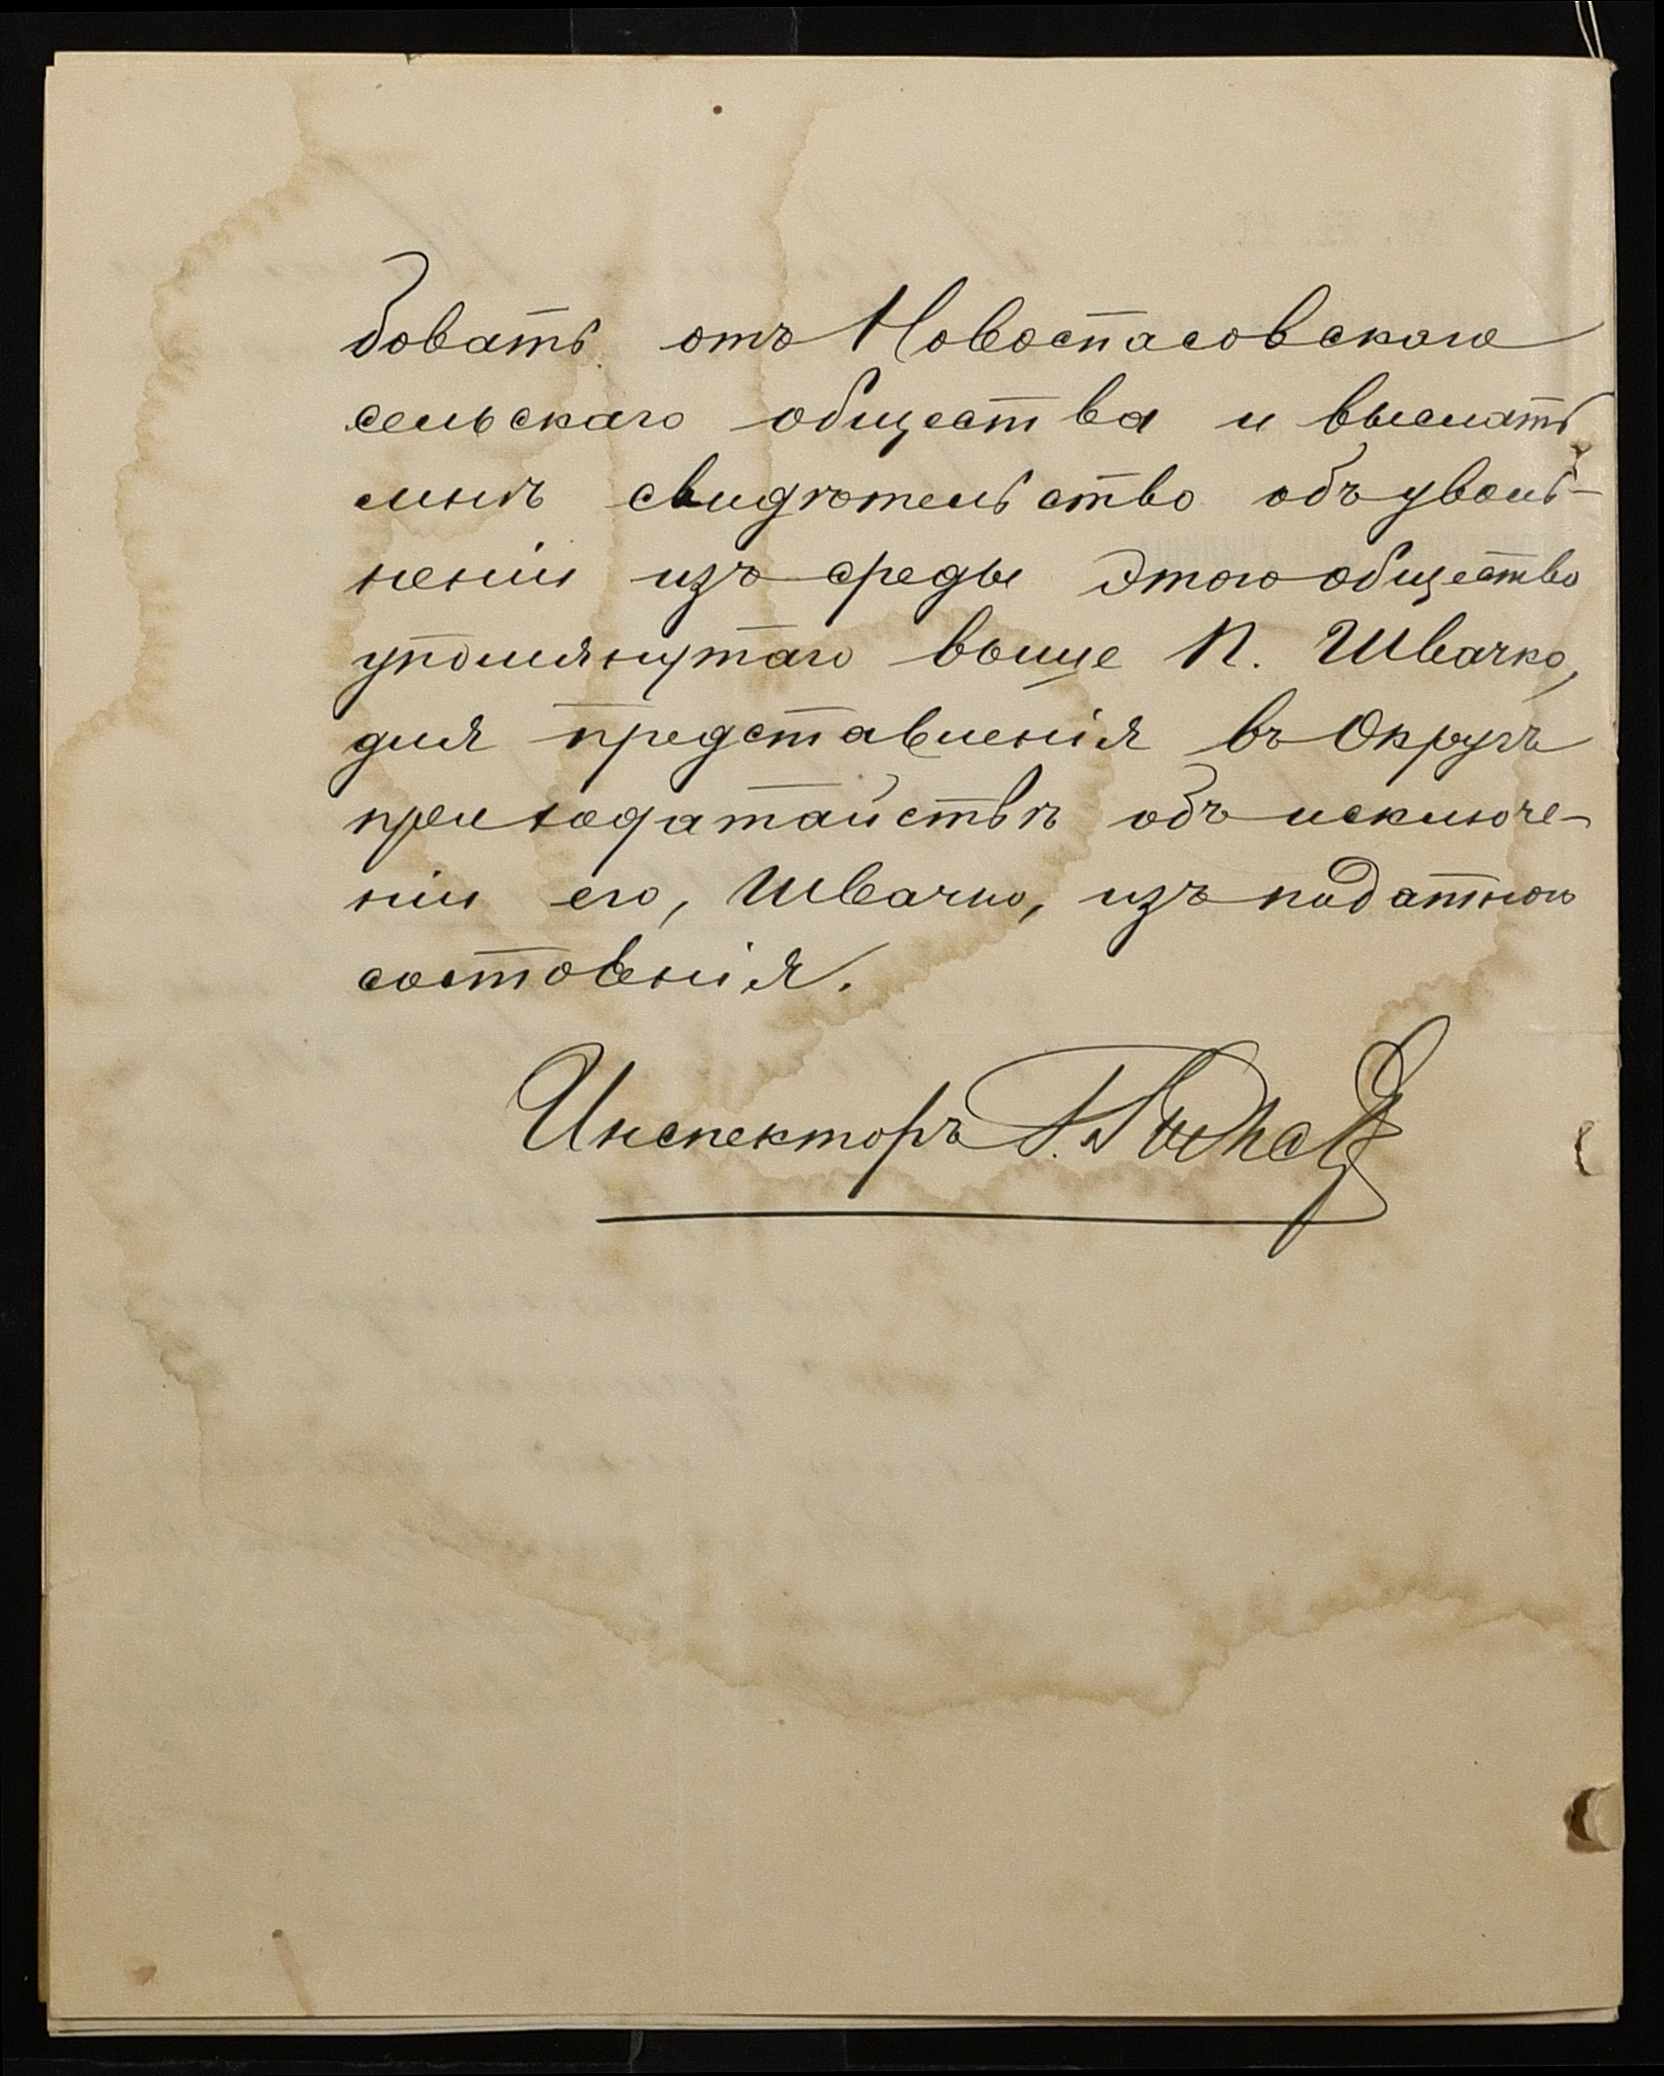 бовать отъ Новоспасовскаго
сельскаго общества и выслать
мнѣ свидѣтельство объ уволь-
неніи изъ среды этого общества
упомянутаго выше П. Швачко,
для представленія въ Округъ
при ходатайствѣ объ исключе-
ніи его, Швачко, изъ податного
состоянія.
Инспекторъ